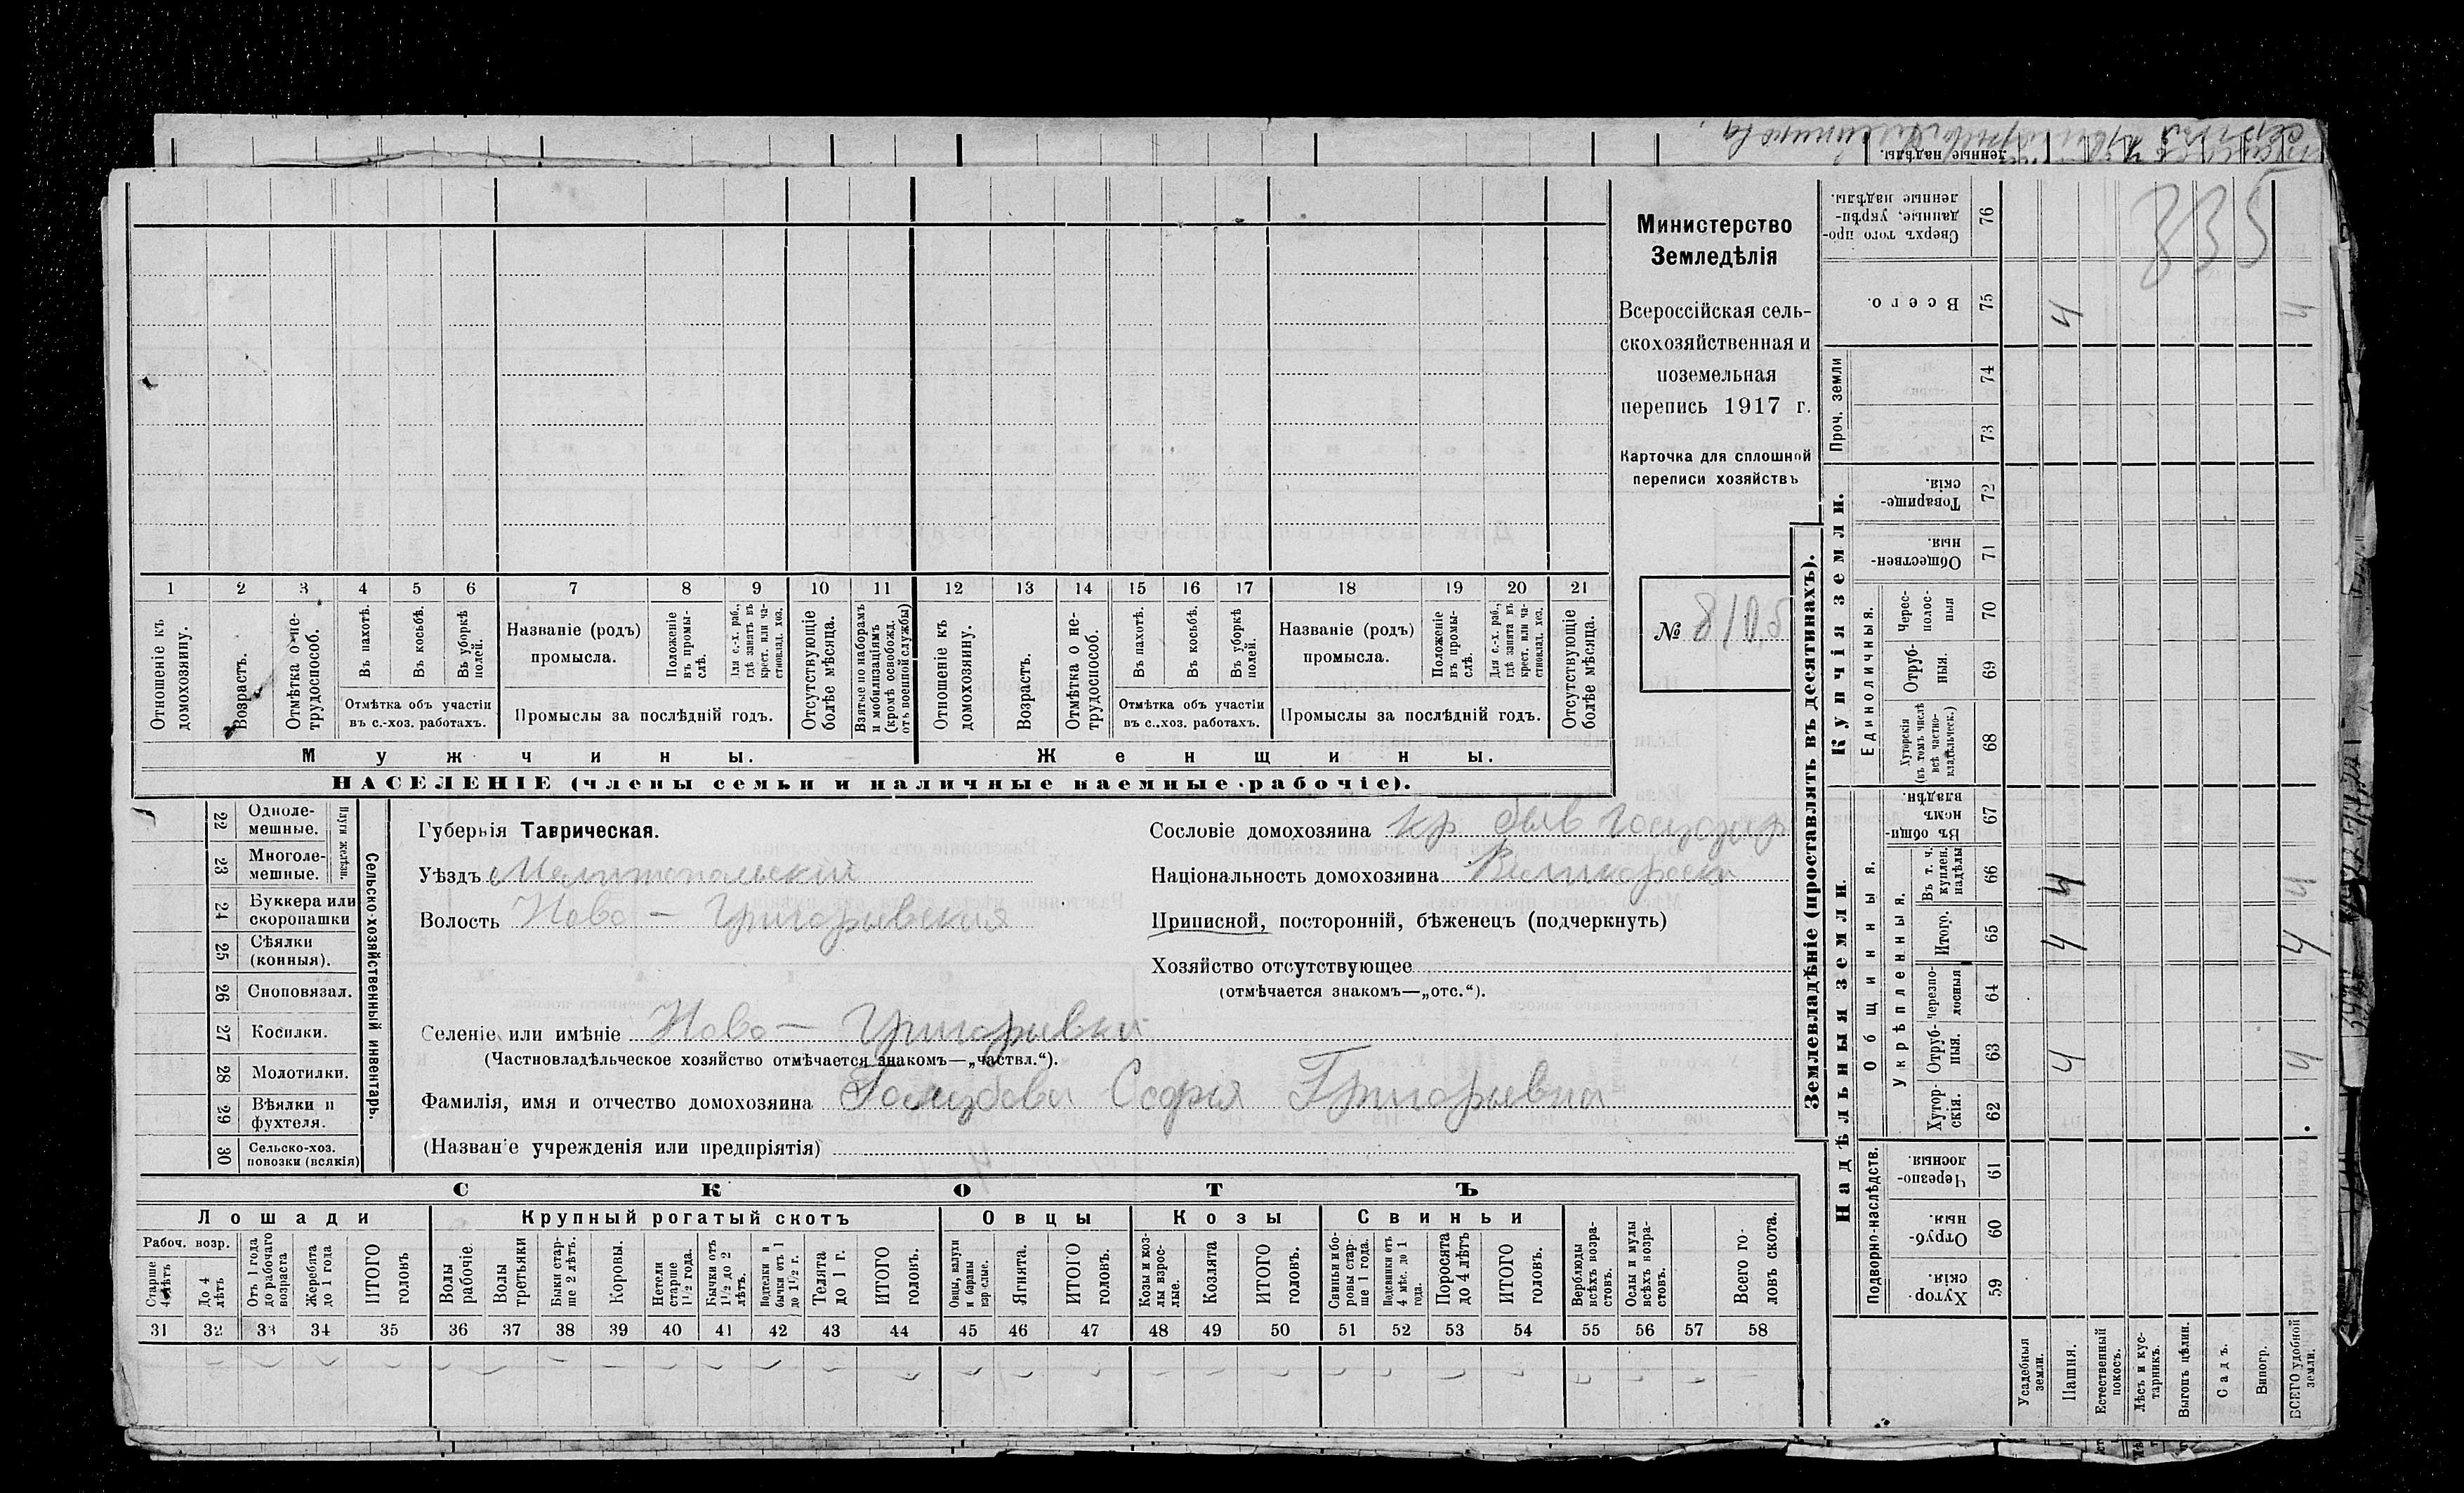 Министерство
Земледѣлія
Всероссійская сель-
скохозяйственная и
поземельная
перепись 1917 г.
Карточка для сплошной
переписи хозяйствъ
№ 8105
835
1 2 3 4 5 6 7 8 9 10 11 12 13 14 15 16 17 18 19 20 21
Отношеніе къ домохозяину.
Возрастъ.
Отмѣтка о не-трудоспособ.
Въ пахотѣ.
Въ косьбѣ.
Въ уборкѣ полей.
Отмѣтка объ участіи
въ с.-хоз. работахъ.
Названіе (родъ)
промысла.
Положеніе въ промы-слѣ.
Для с.-х. раб., гдѣ занятъ въ крест. или ча-стновлад. хоз.
Промыслы за послѣдній годъ.
Отсутствующіе болѣе мѣсяца.
Взятые по наборамъ и мобилизаціямъ (кромѣ освобожд. отъ военной службы)
Отношеніе къ домохозяину.
Возрастъ.
Отмѣтка о не-трудоспособ.
Въ пахотѣ.
Въ косьбѣ.
Въ уборкѣ полей.
Отмѣтка объ участіи
въ с.-хоз. работахъ.
Названіе (родъ)
промысла.
Положеніе въ промы-слѣ.
Для с.-х. раб., гдѣ занята въ крест. или ча-стновлад. хоз.
Промыслы за послѣдній годъ.
Отсутствующіе болѣе мѣсяца.
Мужчины.
Женщины.
НАСЕЛЕНІЕ (члены семьи и наличные наемные рабочіе).
22 Одноле-мешные.
23 Многоле-мешные.
Плуги желѣзн.
24 Буккера или скоропашки
25 Сѣялки (конныя).
26 Сноповязал.
27 Косилки.
28 Молотилки.
29 Вѣялки и фухтеля.
30 Сельско-хоз. повозки (всякія)
Сельско-хозяйственный инвентарь.
Губернія Таврическая.
Уѣздъ Мелитопольскій
Волость Ново-Григорьевская
Сословіе домохозяина кр быв
Національность домохозяина Великоросы
Приписной, посторонній, бѣженецъ (подчеркнуть)
Хозяйство отсутствующее
(отмѣчается знакомъ—„отс.“).
Селеніе или имѣніе Ново-Григорьевка
(Частновладѣльческое хозяйство отмѣчается знакомъ—„частвл.“).
Фамилія, имя и отчество домохозяина Голубова Софія Григорьевна
(Названіе учрежденія или предпріятія)
СКОТЪ
Лошади Крупный рогатый скотъ Овцы Козы Свиньи
Рабоч. возр.
Старше 4 лѣтъ
До 4 лѣтъ
Отъ 1 года до рабочаго возраста
Жеребята до 1 года
ИТОГО головъ
Волы рабочіе.
Волы третьянки
Быки стар-ше 2 лѣтъ.
Коровы.
Нетели старше 1½ года.
Бычки отъ 1½ до 2 лѣтъ.
Подтелки и бычки отъ 1 до 1½ г.
Телята до 1 г.
ИТОГО головъ.
Овцы, валухи и бараны взрослые.
Ягнята.
ИТОГО головъ.
Козы и коз-лы взрос-лые.
Козлята
ИТОГО головъ.
Свиньи и бо-ровы стар-ше 1 года.
Подсвинки отъ 4 мѣс. до 1 года.
Поросята до 4 лѣтъ
ИТОГО головъ.
Верблюды всѣхъ возра-стовъ.
Ослы и мулы всѣхъ возра-стовъ.
Всего го-ловъ скота.
31 32 33 34 35 36 37 38 39 40 41 42 43 44 45 46 47 48 49 50 51 52 53 54 55 56 57 58
Землевладѣніе (проставлять въ десятинахъ).
Надѣльныя земли.
Купчія земли.
Проч. земли
Подворно-наслѣдств.
Общинныя.
Укрѣпленныя.
Единоличныя.
Сверхъ того про-данные, укрѣп-ленные надѣлы. 76
Всего. 75 4 4
74
73
Товарище-скія. 72
Обществен-ныя. 71
Черес-полос-ныя 70
Отруб-ныя. 69
Хуторскія (въ томъ числѣ всѣ частно-владѣльческ.) 68
Въ общи-номъ владѣн. 67
Въ т. ч. куплен. надѣлы 66 4 4
Итого. 65 4 4
Черезпо-лосныя 64
Отруб-ныя. 63 4 4
Хутор-скія. 62
Черезпо-лосныя. 61
Отруб-ныя. 60
Хутор-скія. 59
Усадебныя земли.
Пашня.
Естественный покосъ.
Лѣсъ и кус-тарникъ.
Выгонъ цѣлин.
Садъ.
Виногр.
ВСЕГО удобной земли.
ленные надѣлы.